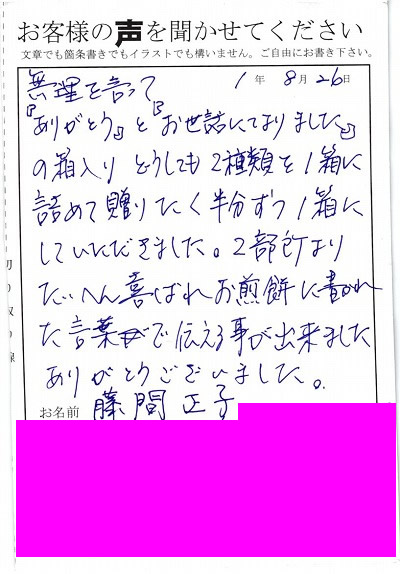 お客様の声を聞かせてください
文章でも箇条書きでもイラストでも構いません。ご自由にお書き下さい。
無理を言って 1年 8月26日
『ありがとう』と『お世話になりました』
の箱入り どうしても2種類を1箱に
詰めて贈りたく半分ずつ1箱に
していただきました。2部所より
たいへん喜ばれお煎餅に書かれ
た言葉で伝える事が出来ました
ありがとうございました。
お名前 藤間 正子
切り取り線